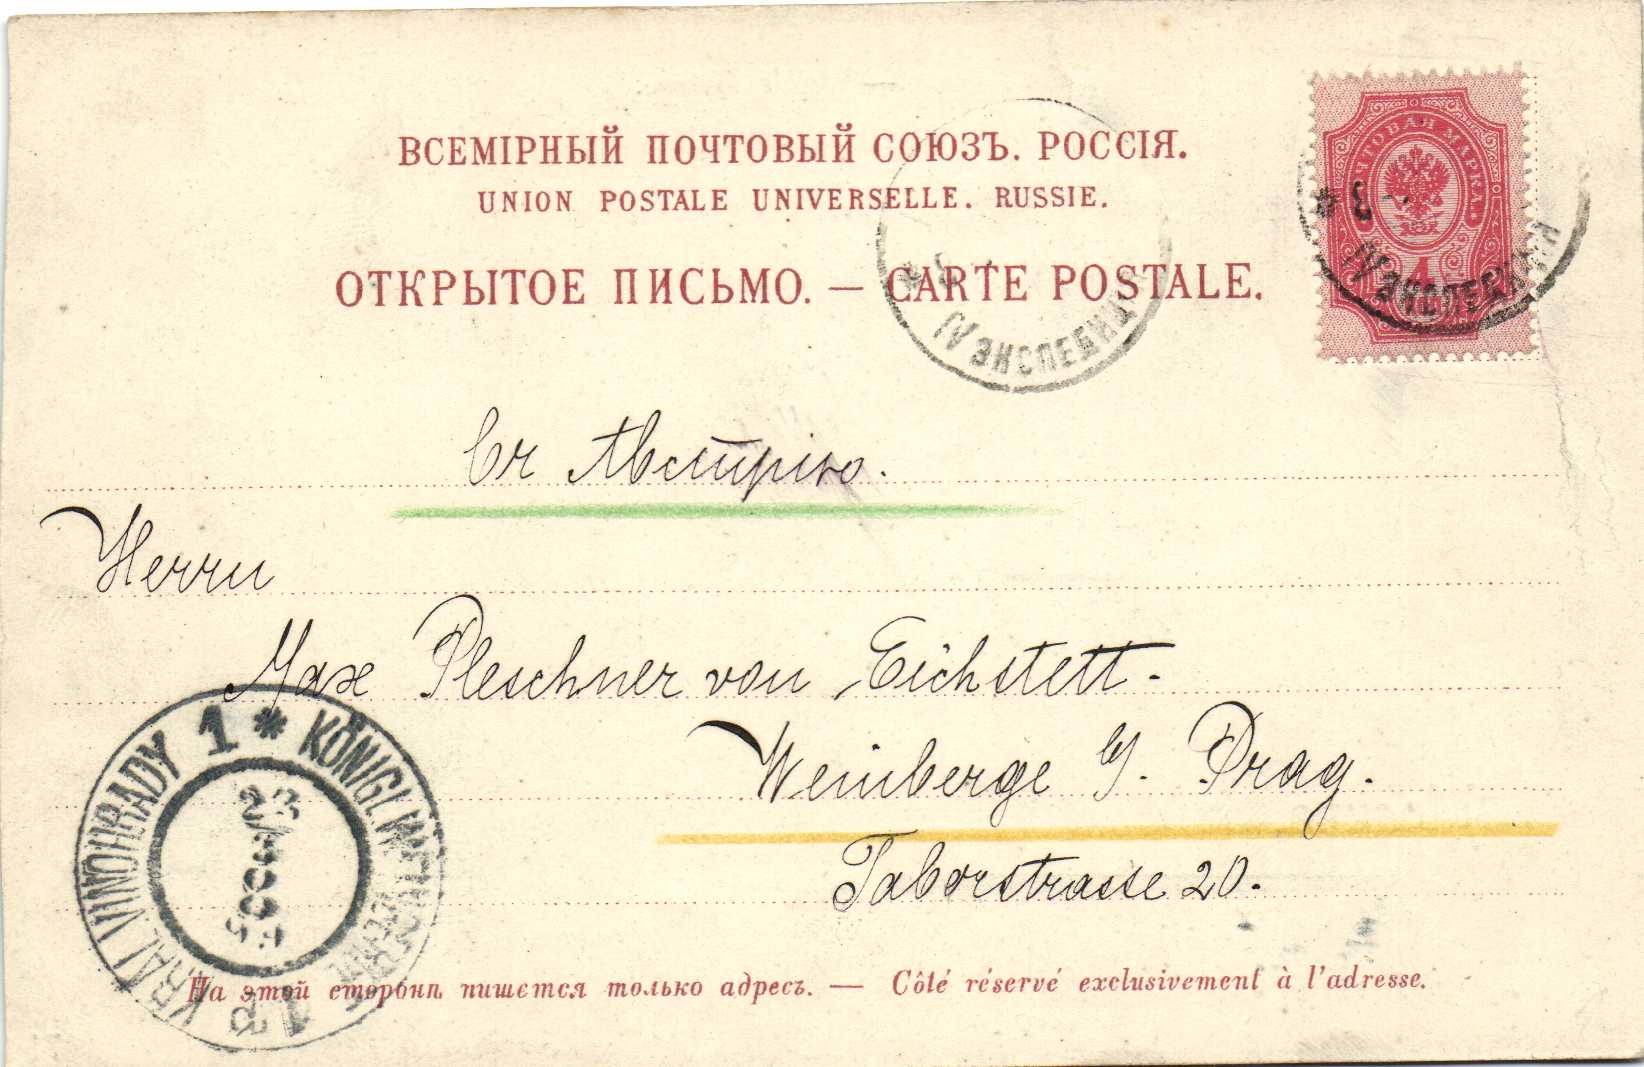 ВСЕМІРНЫЙ ПОЧТОВЫЙ СОЮЗЪ. РОССІЯ.
UNION POSTALE UNIVERSELLE. RUSSIE.
ОТКРЫТОЕ ПИСЬМО. — CARTE POSTALE.
ПОЧТОВАЯ МАРКА
4
* 3
IV ЭКСПЕДИЦ
* 3
IV ЭКСПЕДИЦІЯ
Въ Австрію.
Herrn
Max Pleschner von Eichstett.
Weinberge b/. Prag.
Taborstrasse 20.
KRÁL VINOHRADY 1 * KÖNIGL WEINBERGE 1
На этой сторонѣ пишется только адресъ. — Côté réservé exclusivement à l'adresse.